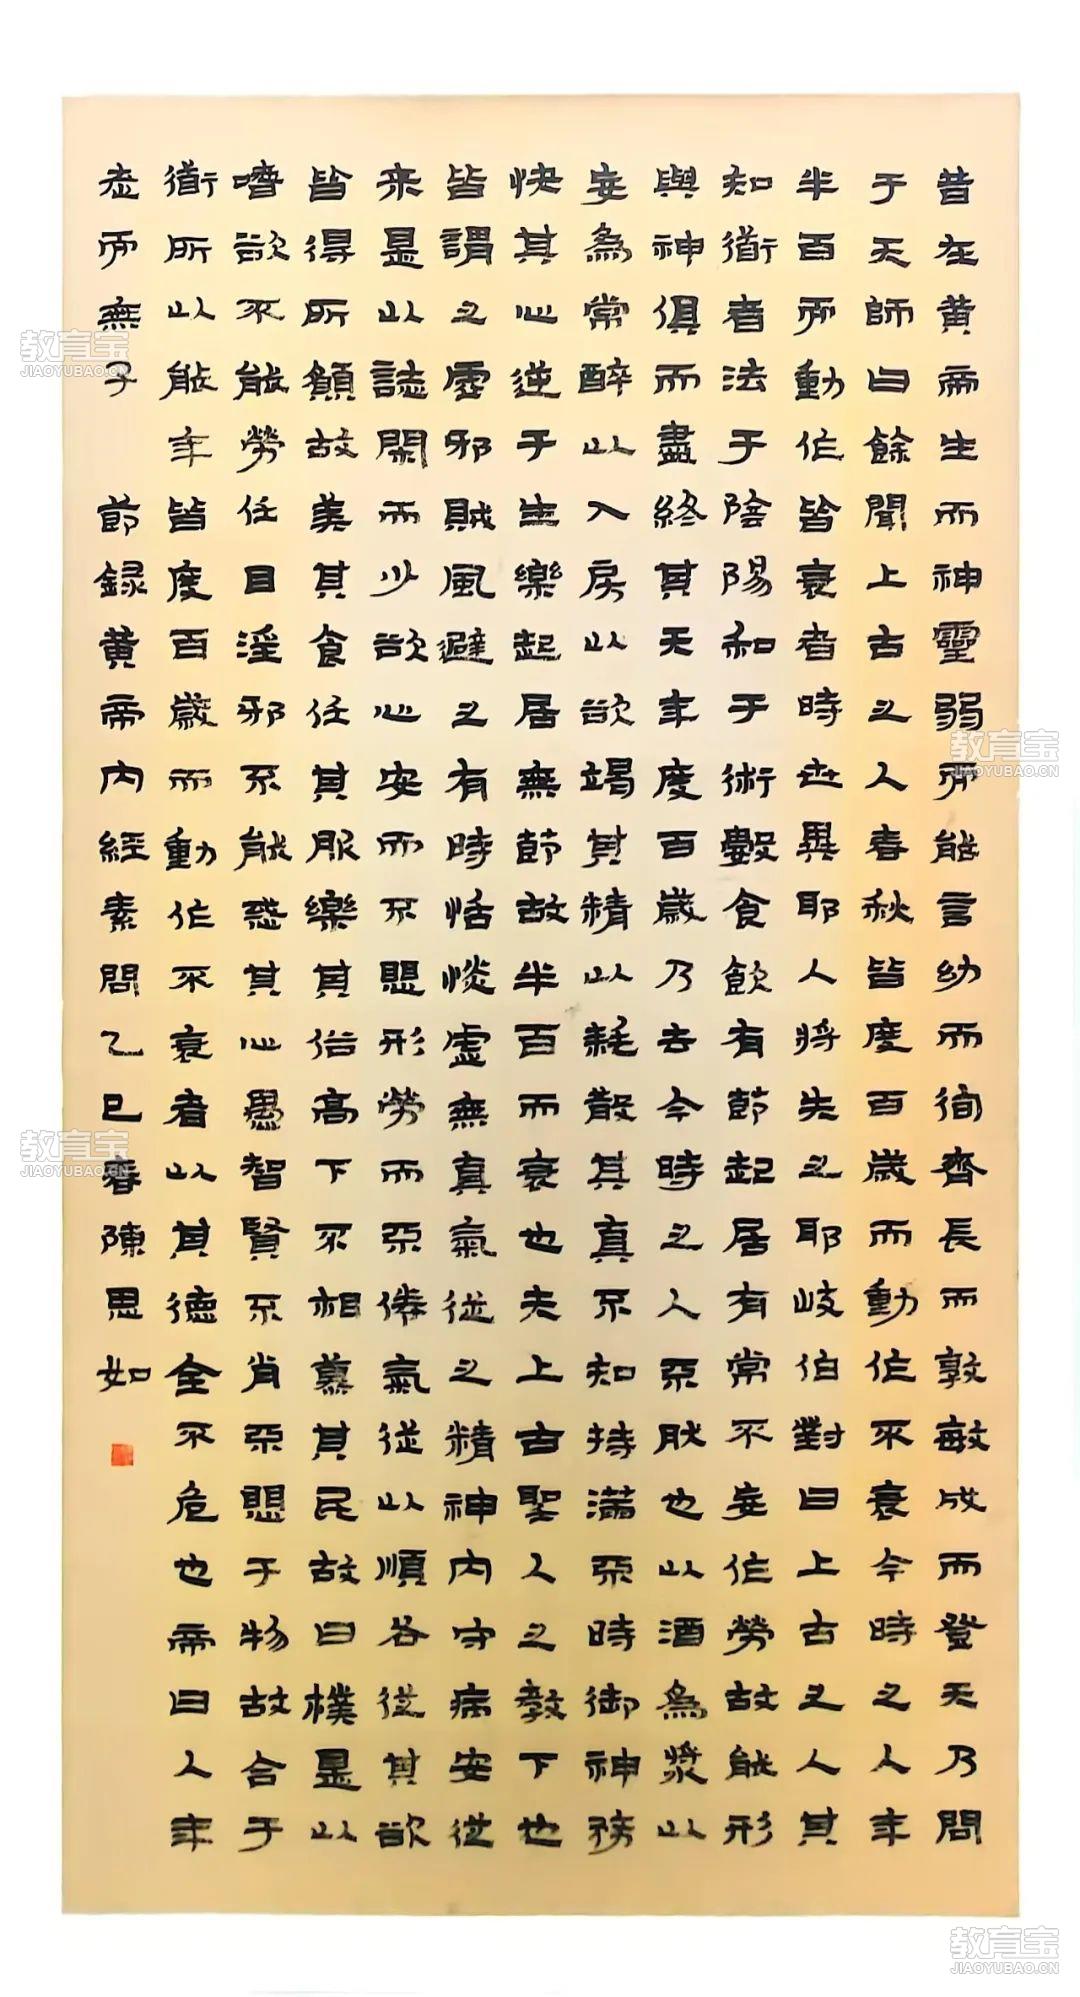 昔在黄帝生而神靈弱而能言幼而徇齊長而敦敏成而登天乃問
于天師曰餘聞上古之人春秋皆度百歲而動作不衰今時之人年
半百而動作皆衰者時世異耶人將失之耶岐伯對曰上古之人其
知衜者法于陰陽和于術數食飲有節起居有常不妄作勞故能形
與神俱而盡終其天年度百歲乃去今時之人不然也以酒為漿以
妄為常醉以入房以欲竭其精以耗散其真不知持滿不時御神務
快其心逆于生樂起居無節故半百而衰也夫上古聖人之教下也
皆謂之虛邪賊風避之有時恬惔虛無真氣從之精神内守病安從
來是以誌閑而少欲心安而不懼形勞而不倦氣從以順各從其欲
皆得所願故美其食任其服樂其俗高下不相慕其民故曰樸是以
嗜欲不能勞任目淫邪不能惑其心愚智賢不肖不懼于物故合于
衜所以能年皆度百歲而動作不衰者以其德全不危也帝曰人年
老而無子 節録黄帝内經素問乙巳春陳思如
教育宝
JIAOYUBAO.CN
教育宝
JIAOYUBAO.CN
教育宝
JIAOYUBAO.CN
教育宝
JIAOYUBAO.CN